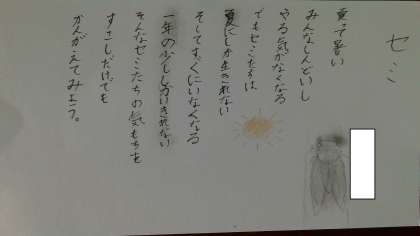 セミ
夏って暑い
みんなしんどいし
やる気がなくなる
でもセミたちは
夏にしか生きれない
そしてすぐにいなくなる
一年の少ししか生きれない
そんなセミたちの気もちを
すこしだけでも
かんがえてみよう。